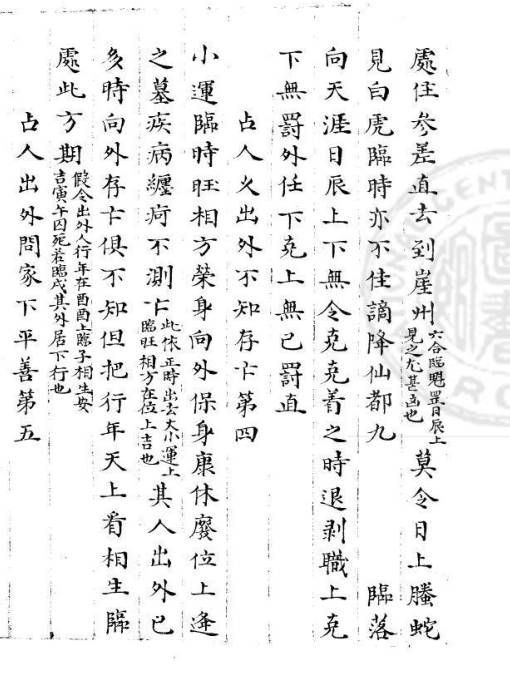 處住參差直去到崖州六合臨魁罡日辰上見之尤甚凶也莫令日上螣蛇
見白虎臨時亦不住謫降仙都九 臨落
向天涯日辰上下無令克克着之時退剥職上克
下無罰外任下克上無已罰直
占人久出外不知存亡第四
小運臨時旺相方榮身向外保身康休廢位上逢
之墓疾病纏疴不測亡此依正時出去大小運上臨旺相方在位上吉也其人出外已
多時向外存亡俱不知但把行年天上看相生臨
處此方期假令出外人行年在酉酉上臨子相生安吉寅午囚死若臨戌其外居下行也
占人出外問家下平善第五